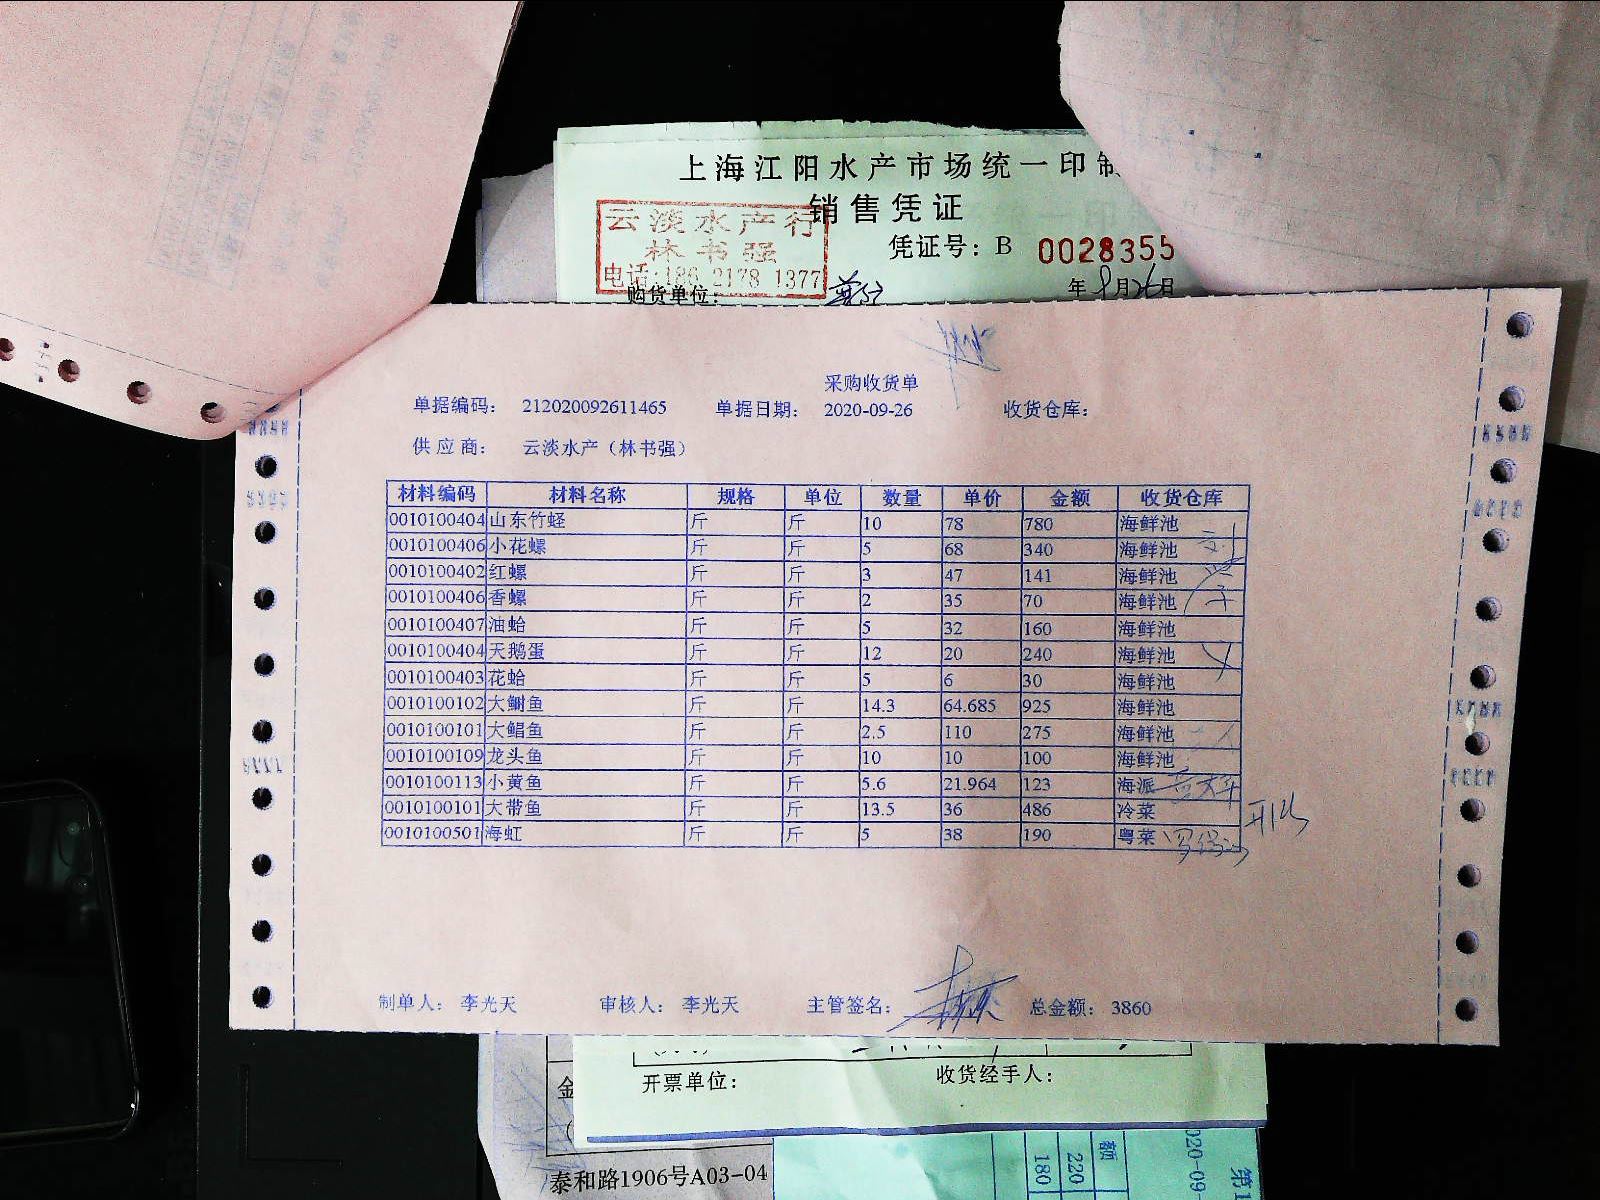 上海江阳水产市场统一印制
销售凭证
云淡水产行
林书强
电话:186 2178 1377
凭证号: B 0028355
购货单位:
年8月26日
采购收货单
单据编码: 212020092611465 单据日期: 2020-09-26 收货仓库:
供应商: 云淡水产（林书强）
材料编码 材料名称 规格 单位 数量 单价 金额 收货仓库
0010100404 山东竹蛏 斤 斤 10 78 780 海鲜池
0010100406 小花螺 斤 斤 5 68 340 海鲜池
0010100402 红螺 斤 斤 3 47 141 海鲜池
0010100406 香螺 斤 斤 2 35 70 海鲜池
0010100407 油蛤 斤 斤 5 32 160 海鲜池
0010100404 天鹅蛋 斤 斤 12 20 240 海鲜池
0010100403 花蛤 斤 斤 5 6 30 海鲜池
0010100102 大鲥鱼 斤 斤 14.3 64.685 925 海鲜池
0010100101 大鲳鱼 斤 斤 2.5 110 275 海鲜池
0010100109 龙头鱼 斤 斤 10 10 100 海鲜池
0010100113 小黄鱼 斤 斤 5.6 21.964 123 海派
0010100101 大带鱼 斤 斤 13.5 36 486 冷菜
0010100501 海虹 斤 斤 5 38 190 粤菜
制单人: 李光天 审核人: 李光天 主管签名: 总金额: 3860
开票单位: 收货经手人:
金
泰和路1906号A03-04
额
220
180
020-09-
第1